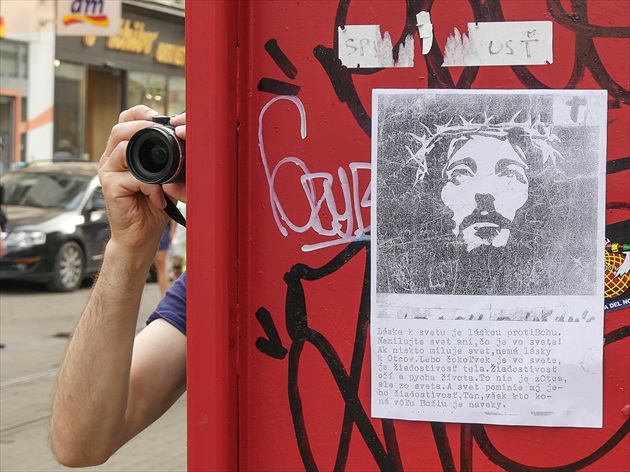 dm
SP
UST
Láska k svetu je láskou protiBohu.
Nemilujte svet ani,čo je vo svete!
Ak niekto miluje svet,nemá lásky
k Otcov.Lebo čokoľvek je vo svete,
je Žiadostivosť tela.Žiadostivosť
očí a pycha života.To nie je zOtca,
ale zo sveta.A svet pominie aj je-
ho žiadostivosť,Ten,však kto ko-
ná vôľu Božiu je naveky.